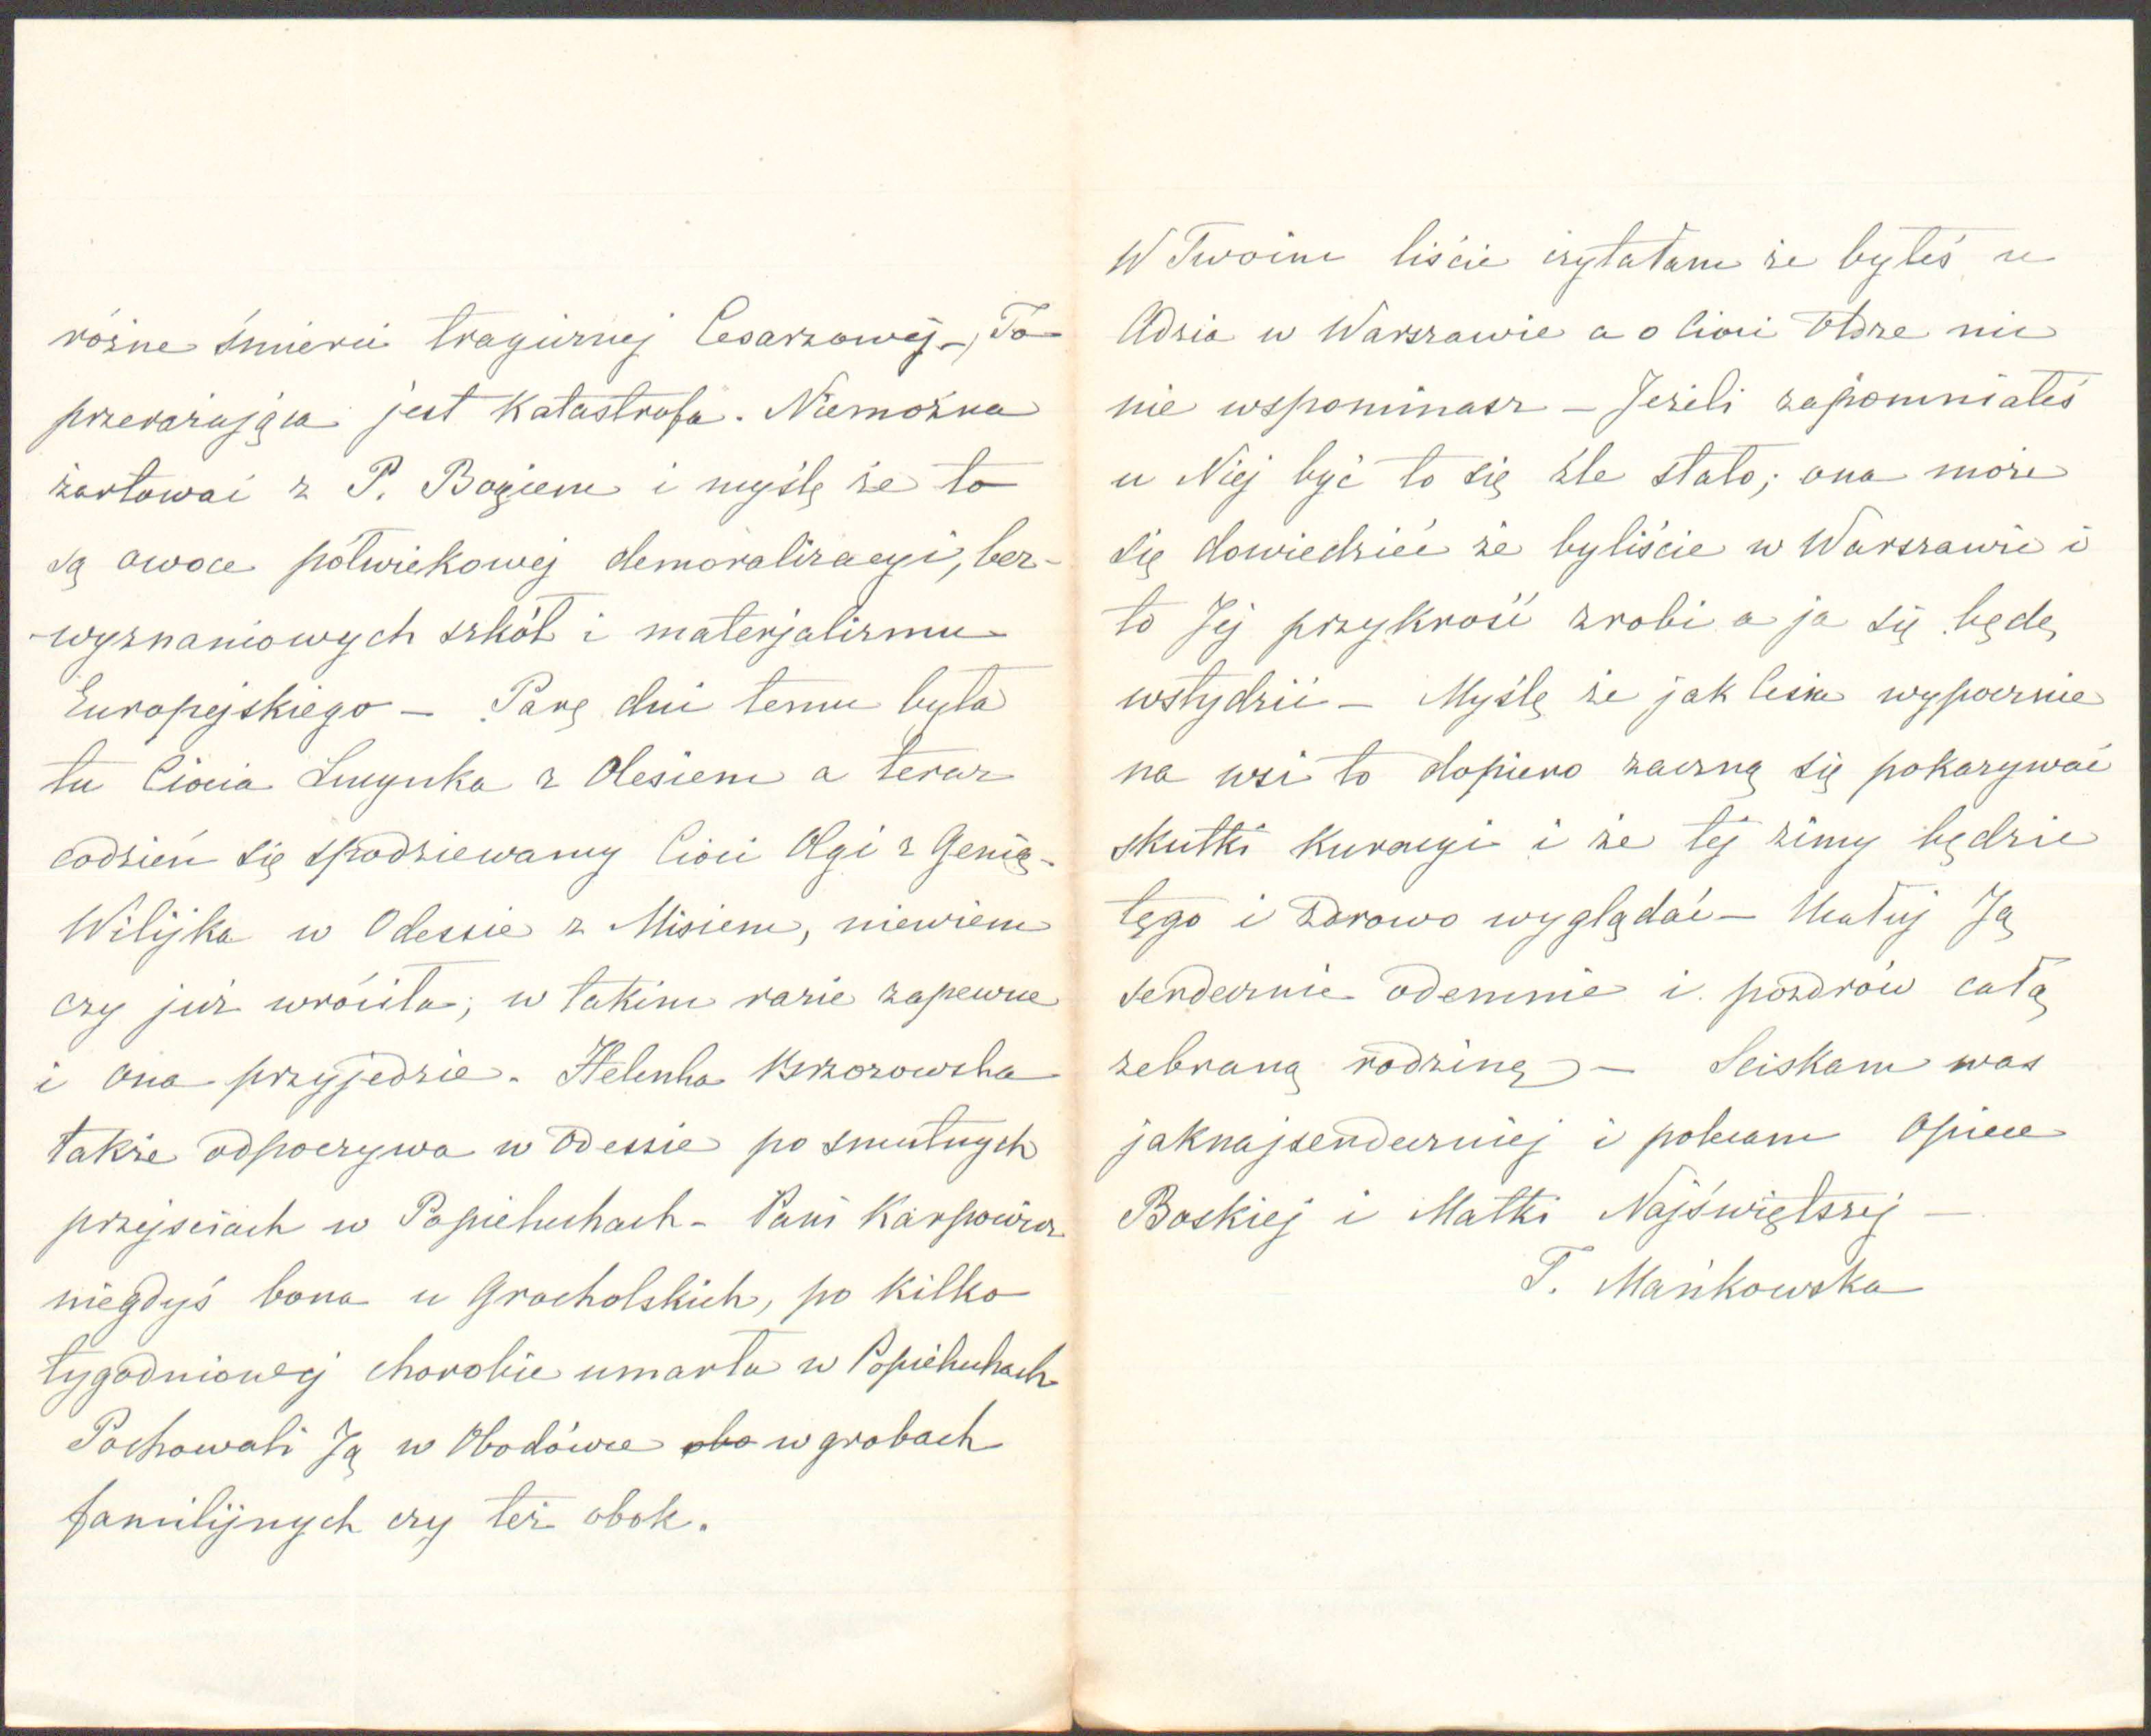 różne śmierci tragicznej Cesarzowej –, To
przerażająca jest katastrofa. Niemożna
żartować z P. Bogiem i myślę że to
są owoce półwiekowej demoralizacyi, bez-
-wyznaniowych szkół i materjalizmu
Europejskiego – Parę dni temu była
tu Ciocia Lucynka z Olesiem a teraz
codzień się spodziewamy Cioci Olgi z Genią –
Wilijka w Odessie z Misiem, niewiem
czy już wróciła; w takim razie zapewne
i ona przyjedzie. Helenka Brzozowska
także odpoczywa w Odessie po smutnych
przejściach w Popieluchach – Pani Karpowicz
niegdyś bona u Grocholskich, po kilko
tygodniowej chorobie umarła w Popieluchach
Pochowali Ją w Obodówce obo w grobach
familijnych czy też obok.
W Twoim liście czytałam że byłeś u
Adzia w Warszawie a o Cioci Idze nic
nie wspominasz – Jeżeli zapomniałeś
u Niej być to się źle stało; ona może
się dowiedzieć że byliście w Warszawie i
to Jej przykrość zrobi a ja się będę
wstydzić – Myślę że jak Cesia wypocznie
na wsi to dopiero zaczną się pokazywać
skutki kuracyi i że tej zimy będzie
tęgo i zdrowo wyglądać – Ucałuj Ją
serdecznie odemnie i pozdrów całą
zebraną rodzinę – Sciskam was
jaknajserdeczniej i polecam Opiece
Boskiej i Matki Najświętszej –
T. Mańkowska